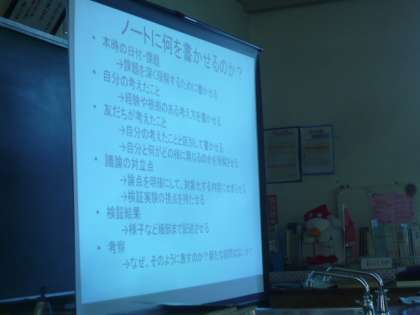 ノートに何を書かせるのか?
・本時の日付・課題
→課題を深く理解するために書かせる
・自分の考えたこと
→経験や根拠のある考え方を書かせる
・友だちが考えたこと
→自分の考えたことと区別して書かせる
→自分と何がどの様に異なるのかを理解させる
・議論の対立点
→論点を明確にして、対象化する
→検証実験の視点を持たせる
・検証結果
→様子など細部まで記述させる
・考察
→なぜ、そのように言えるのか?新たな疑問はないか?